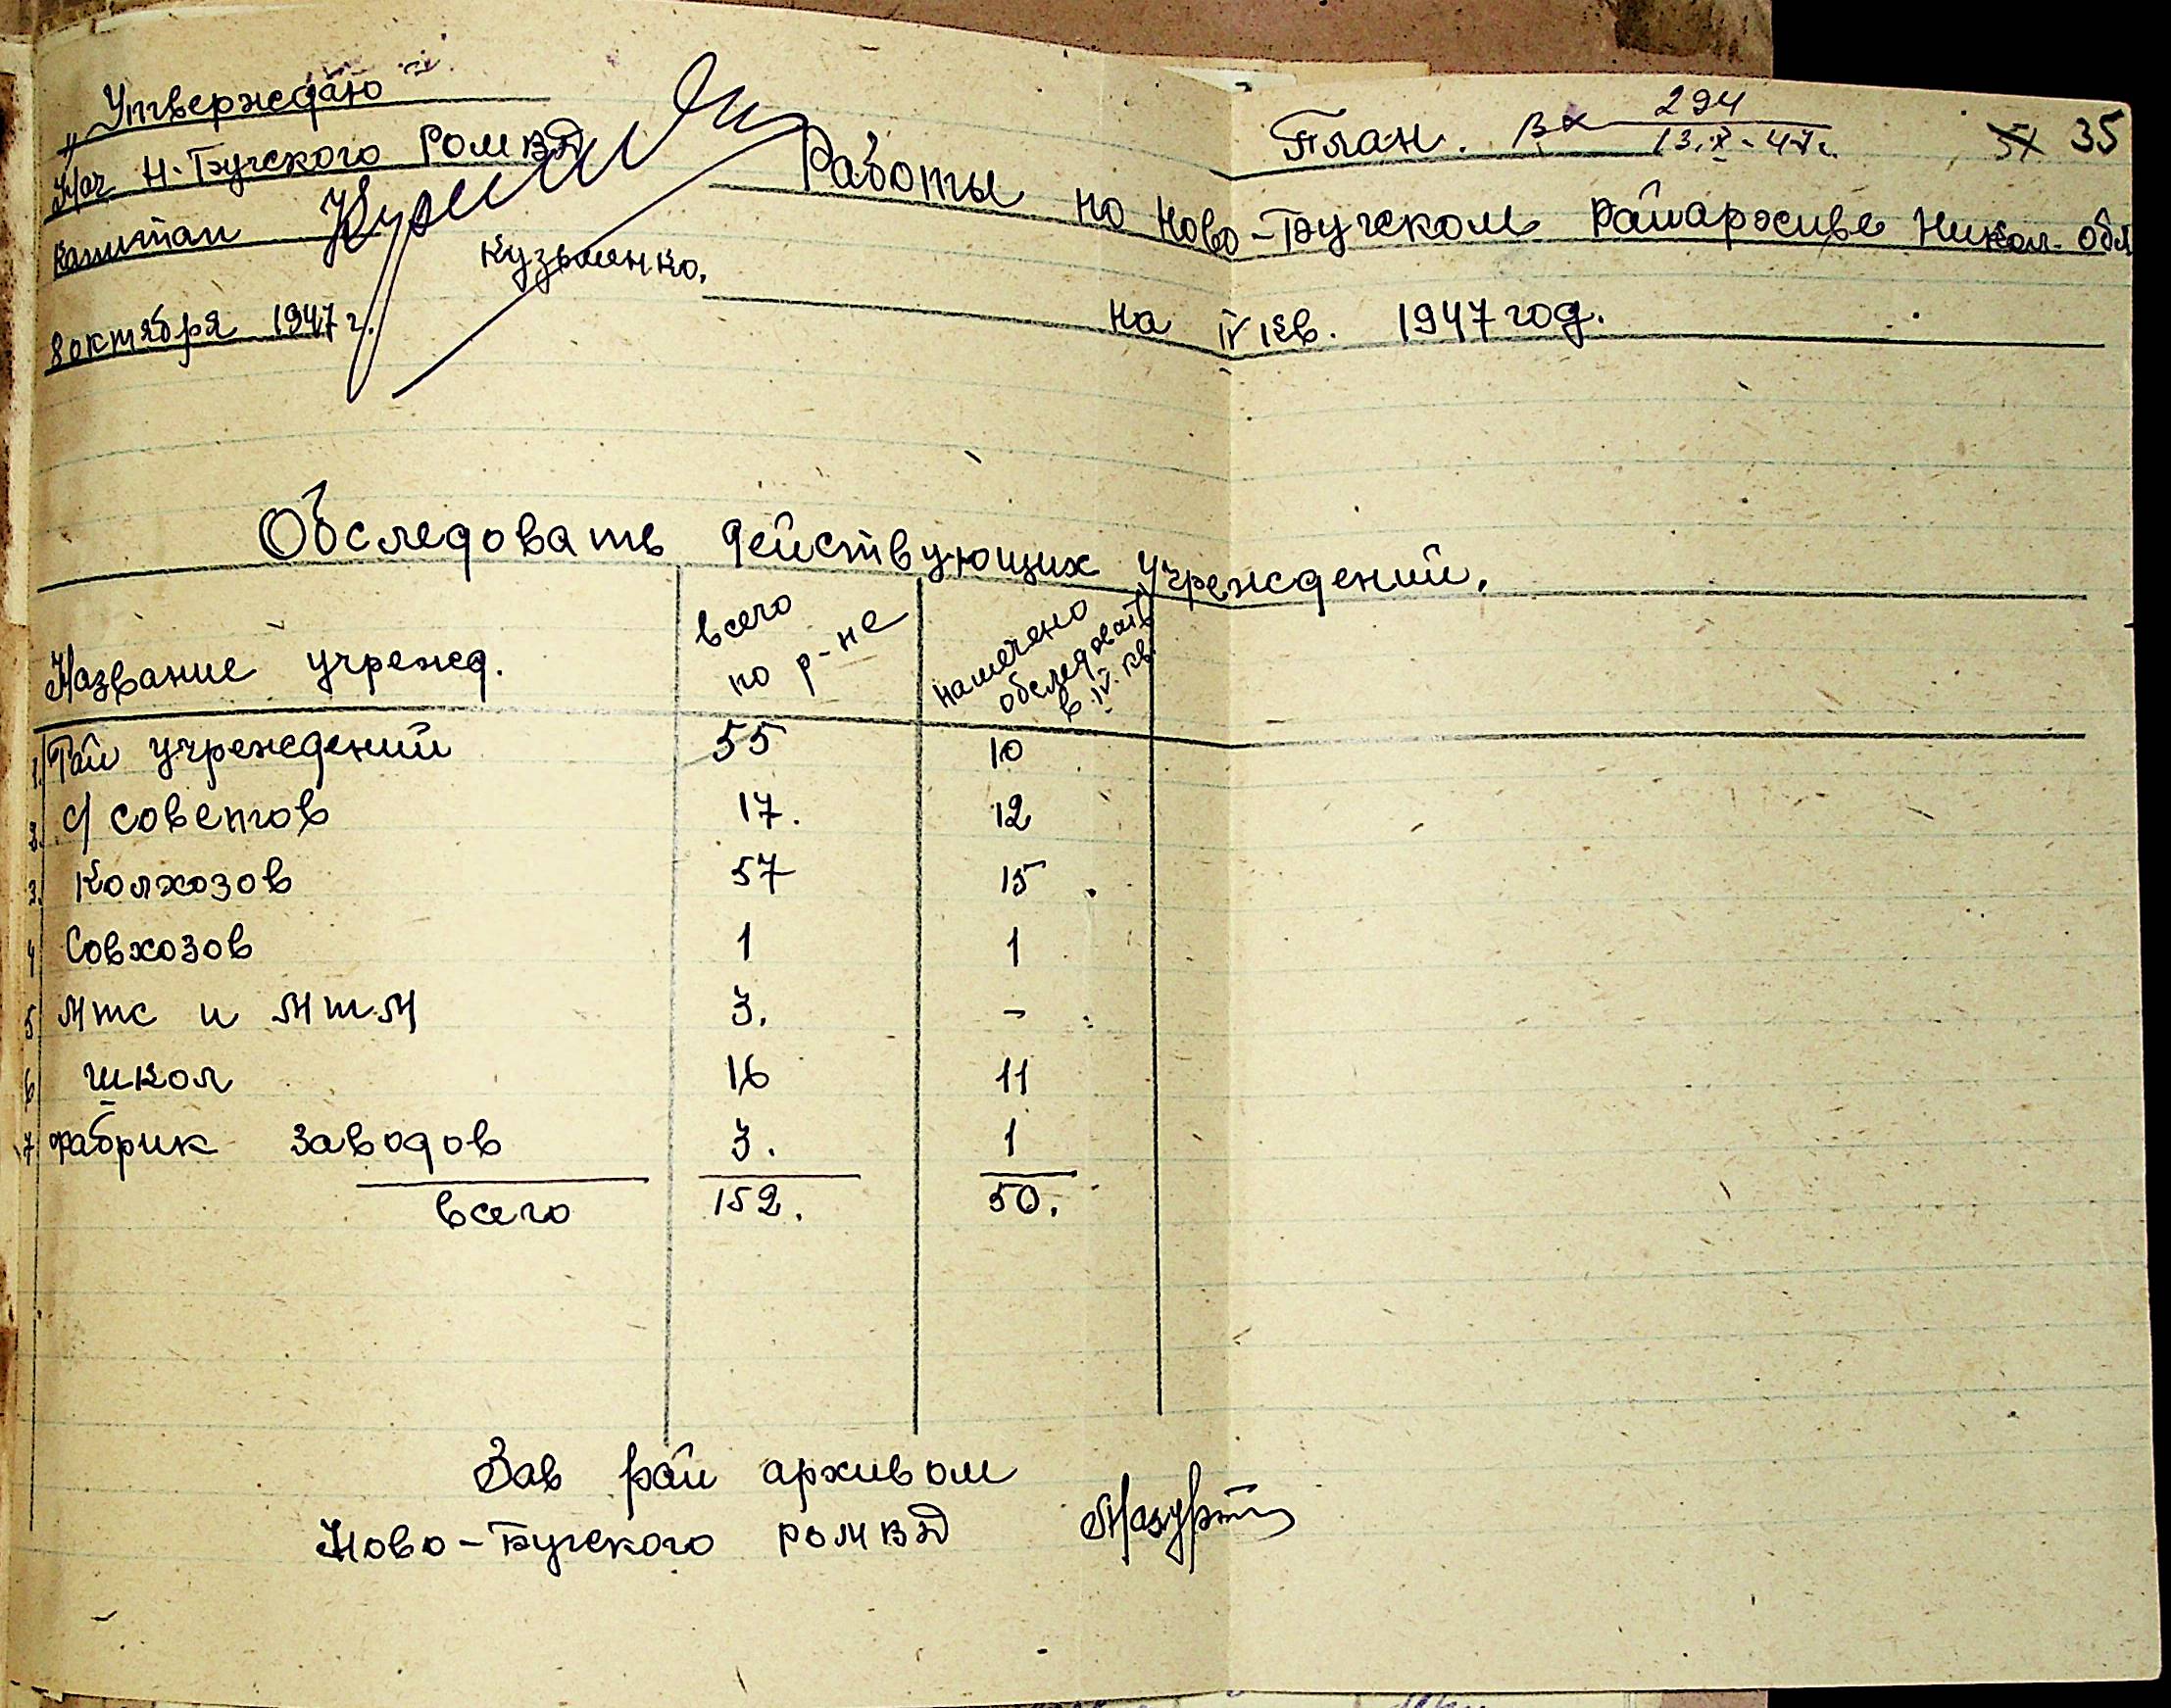 „Утверждаю"
Нач Н-Бугского РОМВД
капитан
Кузьменко.
8 октября 1947 г.
План. Вх 294
13.X-47 г.
57 35
Работы по Ново-Бугском Райархиве Никол. обл
на IV кв. 1947 год.
Обследовать действующих учреждений.
Название учрежд. всего по р-не намечено обследовать в IV. кв.
1. Рай учреждений 55 10
2. с/советов 17. 12
3. Колхозов 57 15
4 Совхозов 1 1
5 МТС и МТМ 3. -
6 школ 16 11
7 фабрик заводов 3. 1
всего 152. 50.
Зав рай архивом
Ново-Бугского РОМВД